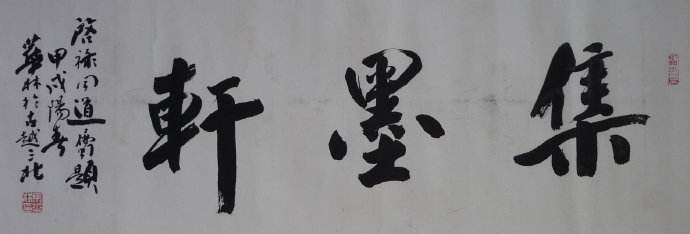 集墨軒
啓祿同道屬題
甲戌陽春
華林於古越三北